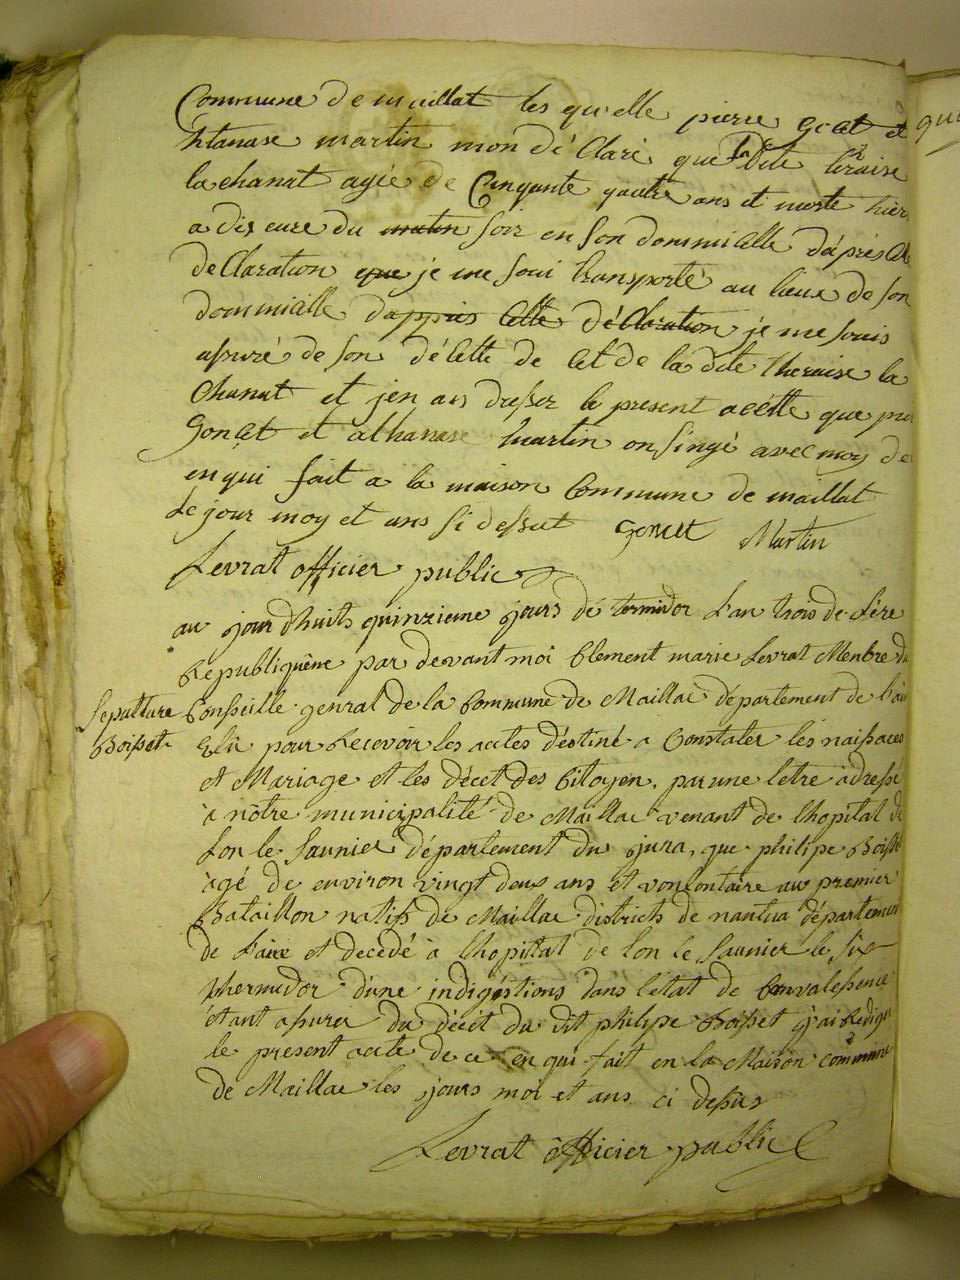 Commune de maillat les quelle pierre gcet et
htanase martin mon dé Claré que la dite téraise
la chanat agée de Cinquante quatre ans et morte hier
a dix eure du matin soir en son dommicille d'âpres cet
deClaration que je me suui transporté au lieux de son
dommicille dappris cette déClaration je me souis
assuré de son décétte de cet de la dite theraise la
Chanat et jen ais dresser le present acétte que
Goncet et athanase martin on singé avec moy de
en qui fait a la maison Commune de maillat
Le jour moy et ans si dessut Goncet Martin
Levrat officier public
au jour dhuits quinzieme jours dé termidor Lan trois de Lêre
Republiquêne par devant moi Clement marie Levrat Menbre du
Sepulture Boisset
Consseille genral de la Commune de Maillac département de l'ain
Elu pour Recevoir les actes déstiné a Constater les naissaces
et Mariage et les décet des Citoyen, par une letre adressé
à nôtre municipalité de Maillac venant de lhopital de
Lon le Saunier département du jura, que philipe Boisset
âgé de environ vingt deux ans et vonlontaire au premier
Bataillon natifs de Maillac districts de nantua département
de L'ain et decedé à lhopital de lon le Saunier le six
thermidor d'une indigéstions dans létat de Convalessence
étant assurer du décet du dit philipe Boisset j'ai Redigé
le present acte de ce en qui fait en la Maison commune
de Maillac les jours moi et ans ci dessus
Levrat officier public